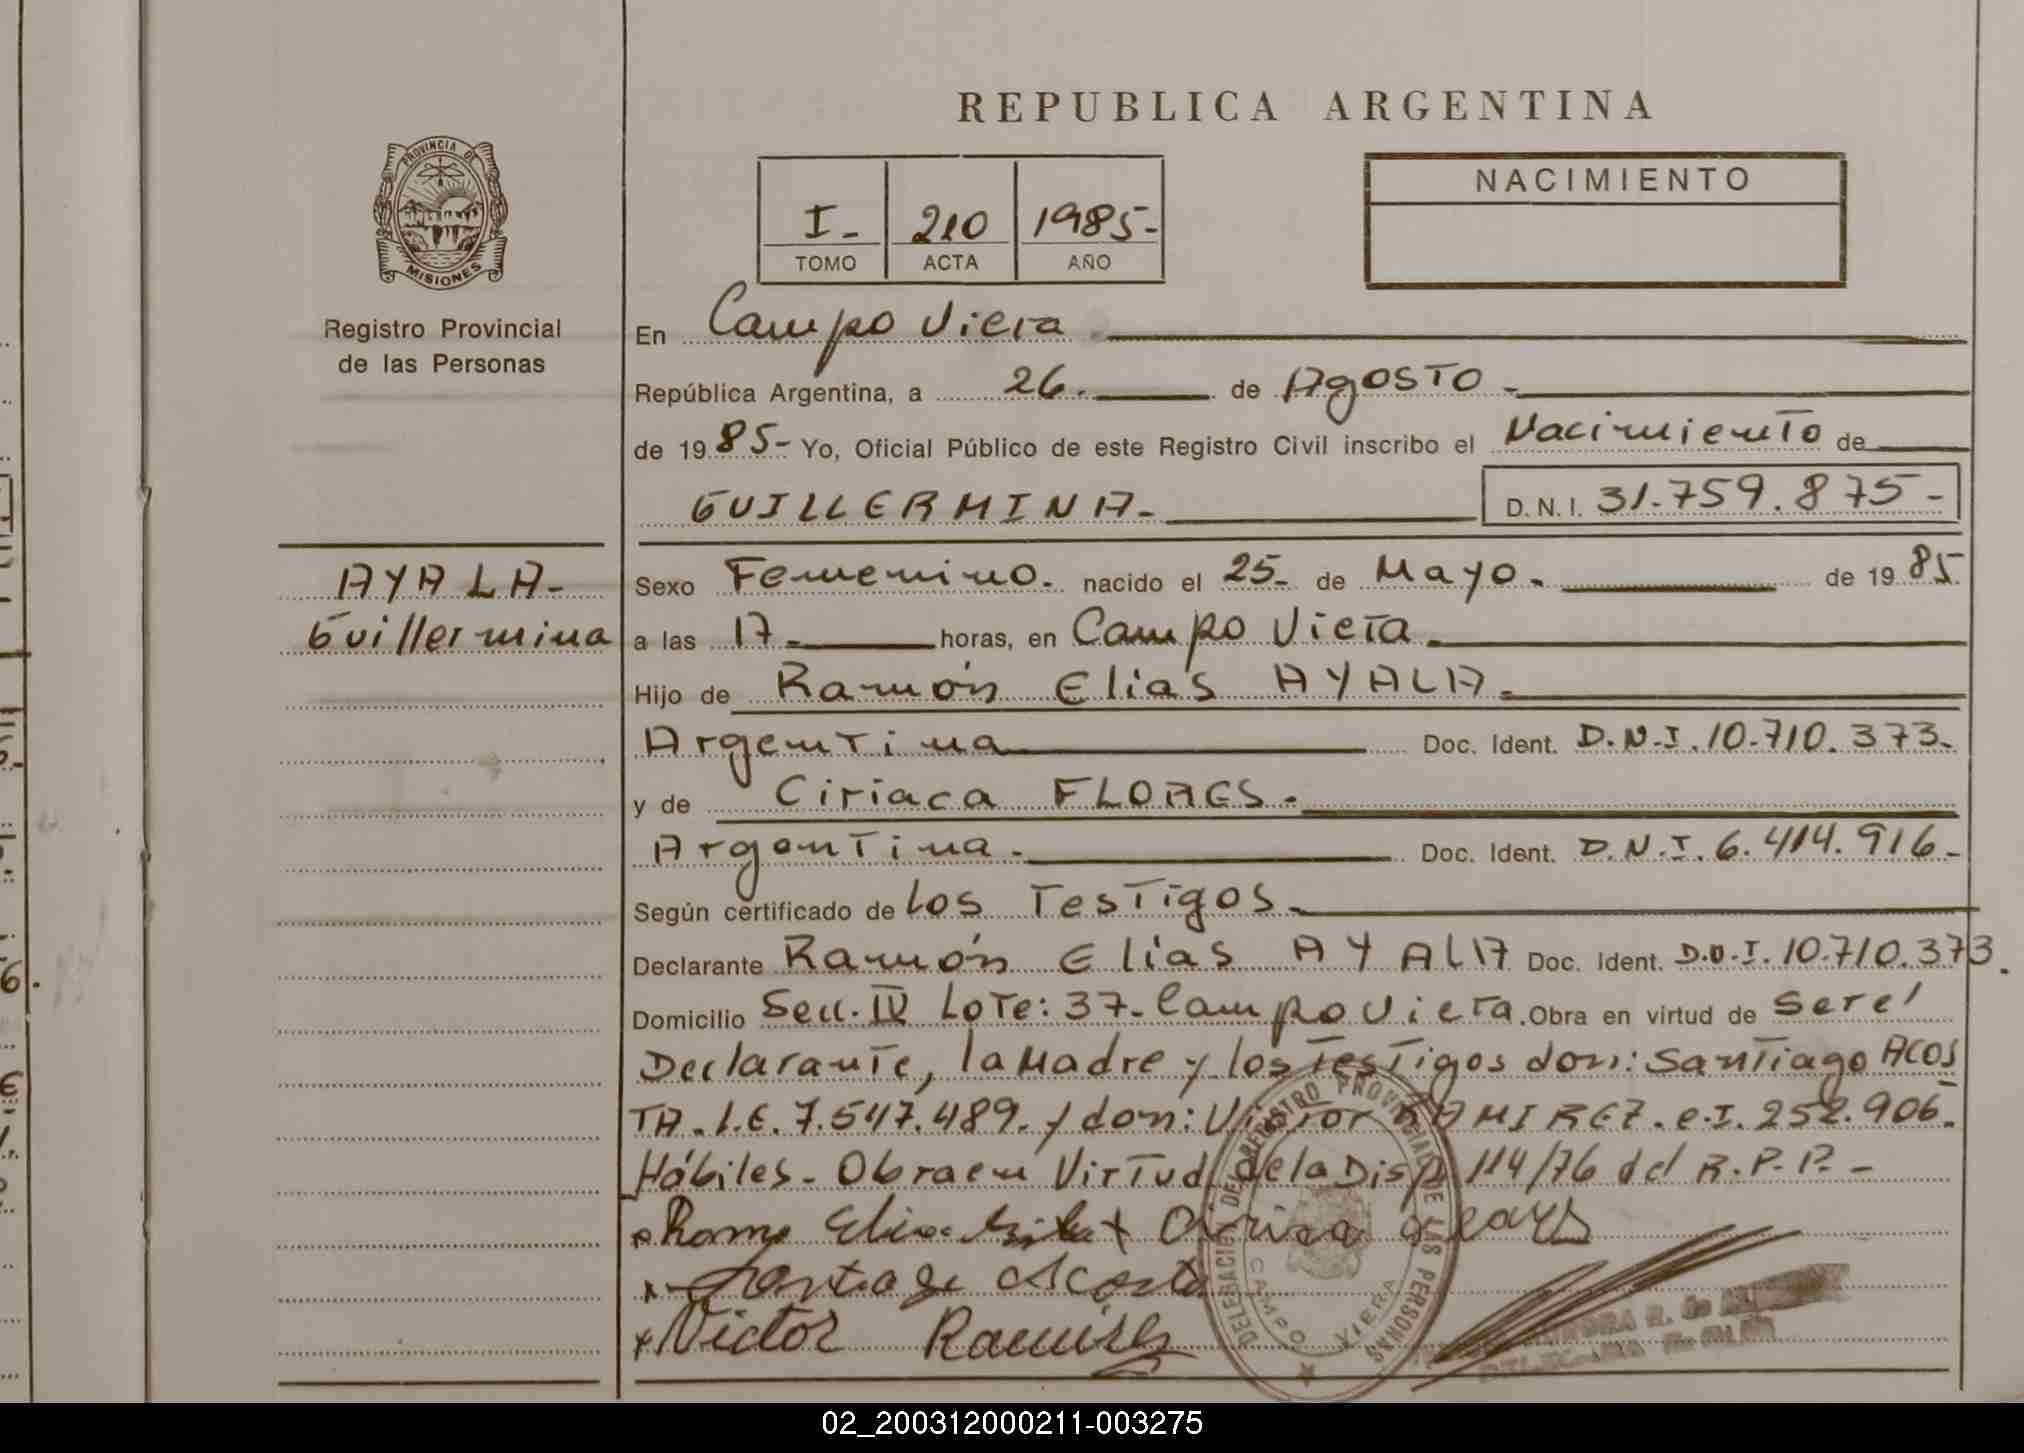 REPUBLICA ARGENTINA
PROVINCIA DE
MISIONES
Registro Provincial
de las Personas
I- 210 1985-
TOMO ACTA AÑO
NACIMIENTO
En Campo Viera
República Argentina, a 26. de Agosto -
de 1985- Yo, Oficial Público de este Registro Civil inscribo el Nacimiento de
GUILLERMINA- D.N.I. 31.759.875-
AYALA-
Guillermina
Sexo Femenino. nacido el 25- de Mayo. de 1985
a las 17- horas, en Campo Viera.
Hijo de Ramón Elías AYALA.
Argentina Doc. Ident. D.N.I. 10.710.373-
y de Ciriaca FLORES.
Argentina. Doc. Ident. D.N.I. 6.414.916-
Según certificado de Los Testigos-
Declarante Ramón Elías AYALA Doc. Ident. D.N.I. 10.710.373.
Domicilio Secc. IV Lote: 37- Campo Viera. Obra en virtud de ser el
Declarante, la Madre y los Testigos don: Santiago ACOS
TA. L.E. 7.547.489. y don: Victor RAMIREZ. C.I. 252.906.
Hábiles- Obra en Virtud de la Disp. 114/76 del R.P.P.-
x Santiago Acosta
x Victor Ramirez
DELEGACION DEL REGISTRO PROVINCIAL DE LAS PERSONAS
CAMPO VIERA
02_200312000211-003275